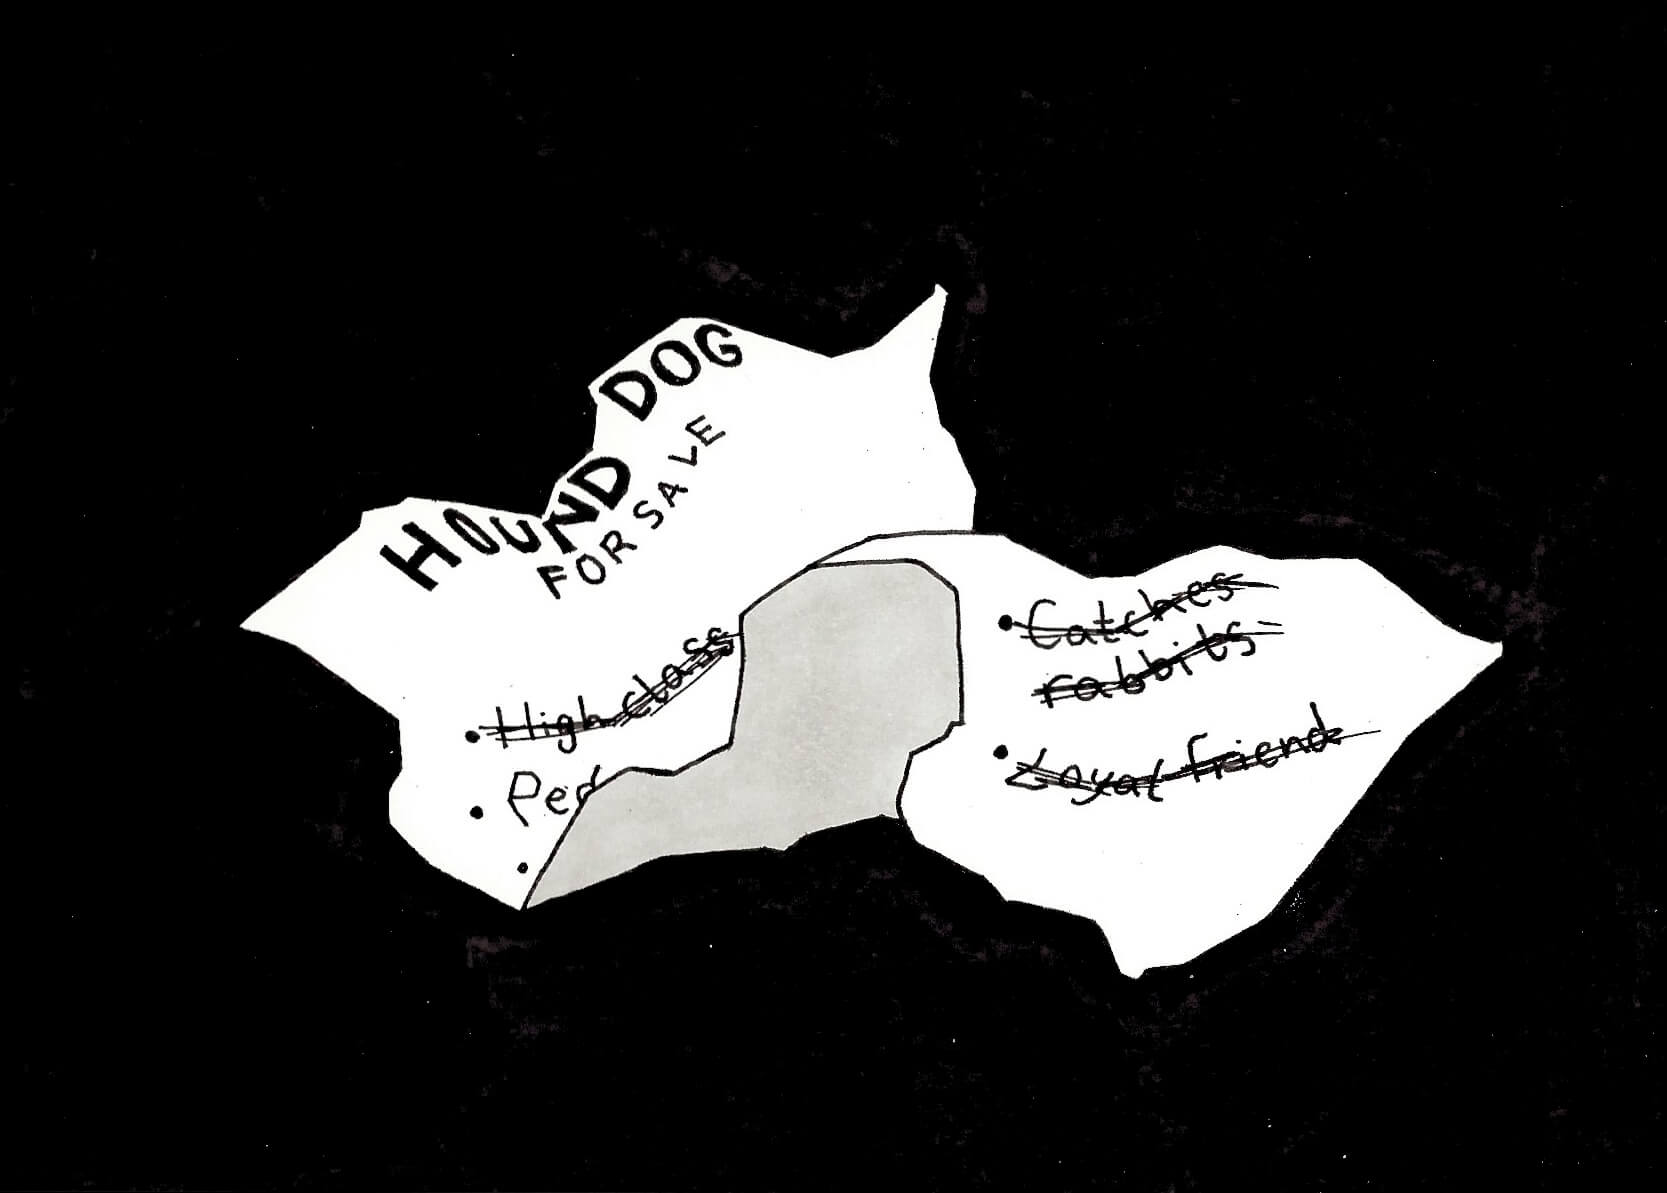 HOUND DOG
FOR SALE
• High class
• Ped
•
• Catches
rabbits
• Loyal friend